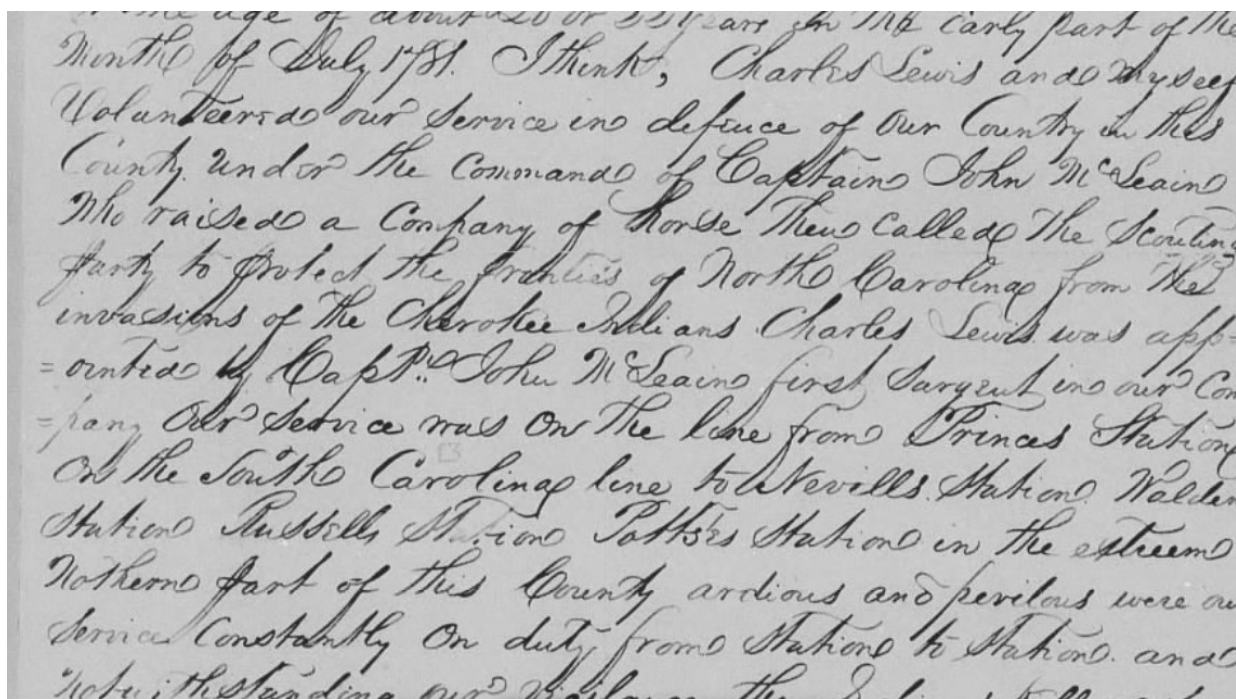 the age of about 20 or 22 years in the early part of the
Month of July 1781. I think, Charles Lewis and myself
Volunteered our Service in defence of Our Country in this
County under the Command of Captain John McLeain
Who raised a Company of horse then Called the Scouting
party to protect the frontiers of North Carolina from the
invasions of the Cherokee Indians. Charles Lewis was app=
=ointed by Captn. John McLeain first Sargent in our Com
=pany Our Service was On the line from Princes Station
On the South Carolina line to Nevills Station Walden
Station Russells Station Pottses Station in the extreem
Nothern part of this County ardious and perilous were our
Service Constantly On duty from Station to Station and
notwithstanding our Vigilance the Indians